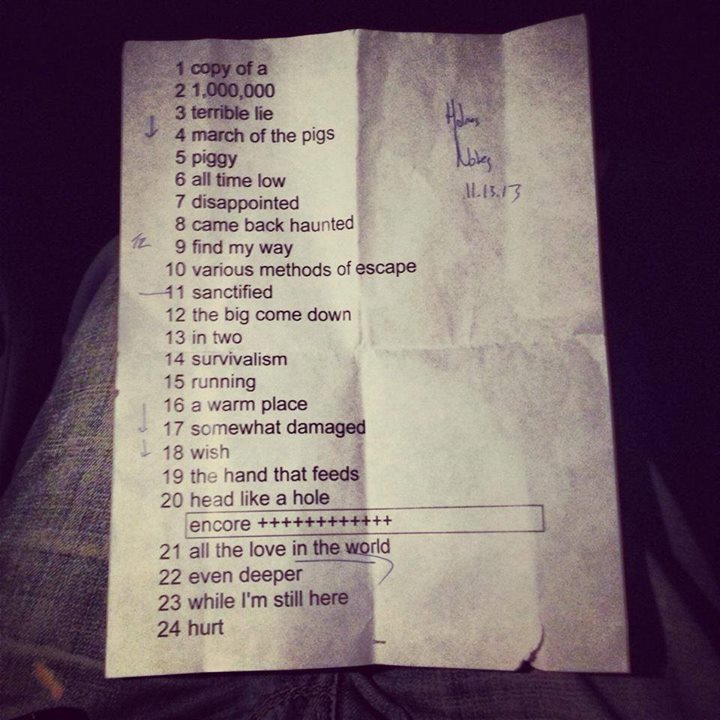 1 copy of a
2 1,000,000
3 terrible lie
4 march of the pigs
5 piggy
6 all time low
7 disappointed
8 came back haunted
9 find my way
10 various methods of escape
11 sanctified
12 the big come down
13 in two
14 survivalism
15 running
16 a warm place
17 somewhat damaged
18 wish
19 the hand that feeds
20 head like a hole
encore ++++++++++++
21 all the love in the world
22 even deeper
23 while I'm still here
24 hurt
Notes
11.13.13